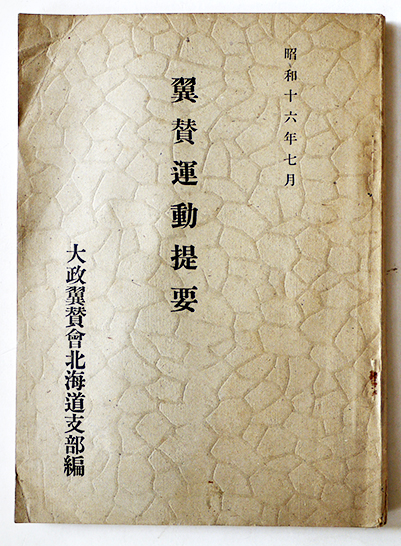 昭和十六年七月
翼賛運動提要
大政翼賛會北海道支部編